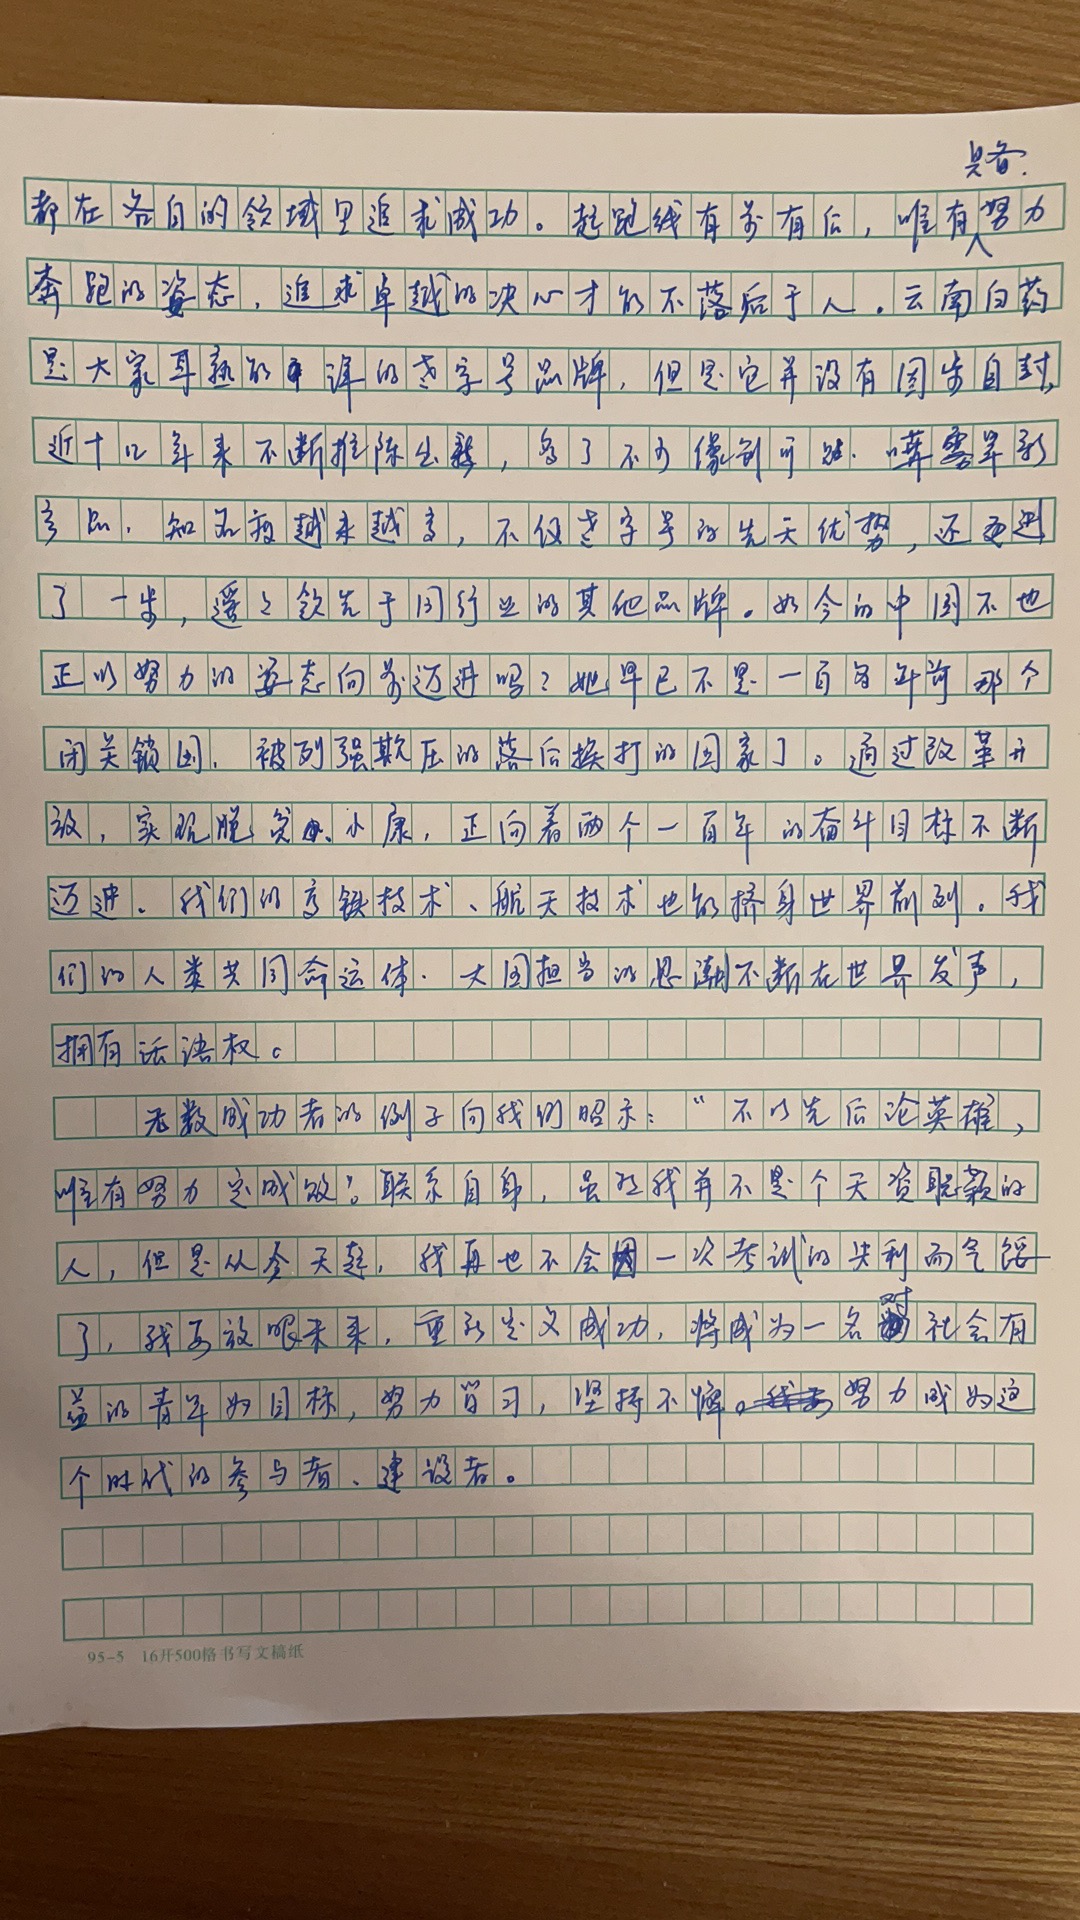 具备
都在各自的领域里追求成功。起跑线有前有后,唯有努力
奔跑的姿态,追求卓越的决心才能不落后于人。云南白药
是大家耳熟能详的老字号品牌,但是它并没有固步自封,
近十几年来不断推陈出新,多了不少像创可贴、喷雾等新
产品,知名度越来越高,不仅老字号的先天优势,还更进
了一步,遥遥领先于同行业的其他品牌。如今的中国不也
正以努力的姿态向前迈进吗?她早已不是一百多年前那个
闭关锁国、被列强欺压的落后挨打的国家了。通过改革开
放,实现脱贫、小康,正向着两个一百年的奋斗目标不断
迈进。我们的高铁技术、航天技术也能挤身世界前列。我
们的人类共同命运体、大国担当的思潮不断在世界发声,
拥有话语权。
无数成功者的例子向我们昭示:“不以先后论英雄,
唯有努力定成败”。联系自身,虽然我并不是个天资聪颖的
人,但是从今天起,我再也不会因一次考试的失利而气馁
了,我要放眼未来,重新定义成功,将成为一名对社会有
益的青年为目标,努力学习,坚持不懈。努力成为这
个时代的参与者、建设者。
95-5 16开500格书写文稿纸